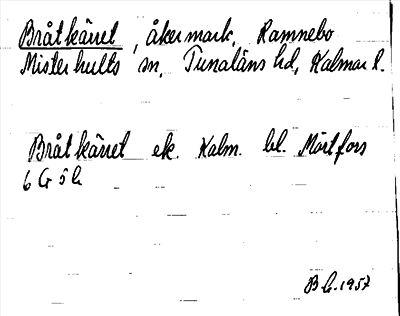 Bråtkärret, åkermark, Ramnebo
Misterhults sn, Tunaläns hd, Kalmar l.
Bråtkärret ek. Kalm. bl. Mörtfors
6 G 5 h
B G. 1957